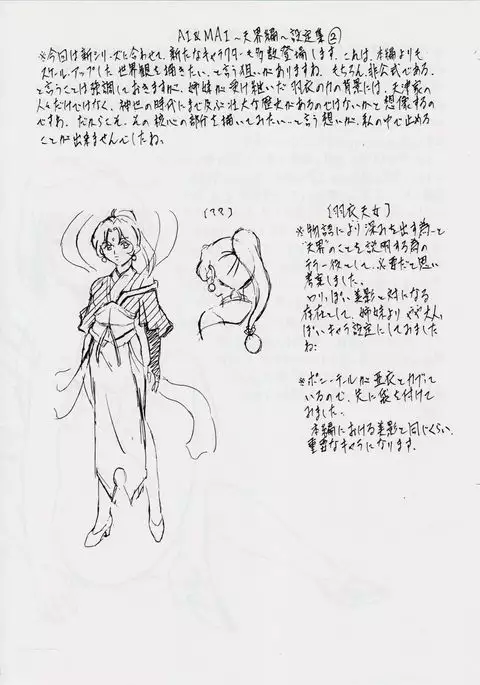 AI&MAI 〜天界編〜設定集②
※今回は新シリーズに合わせて、新たなキャラクターも多数登場します。これは、本編よりも
スケールアップした世界観を描きたい、と言う狙いがありますね。もちろん、非公式である。
と言うことは強調しておきますが、姉妹が受け継いだ羽衣の力の背景には、天津家の
人々だけでなく、神世の時代にまで及ぶ壮大な歴史があるのではないかと想像するの
ですね。だからこそ、その核心の部分を描いてみたい…と言う想いが、私の中で止める
ことが出来ませんでしたね。
(羽衣天女)
※物語により深みを出す為、
"天界"のことを説明する為の
テラー役として、必要だと思い
考案しました。
切りっぽい 差影と対になる
存在として、姉妹よりやや大人
っぽいキャラ設定にしておりました
ね。
※ポニーテールが亜衣とかげて
いるので、先に袋を付けて
みました。
本編における差影と同じくらい、
重要なキャラになります。